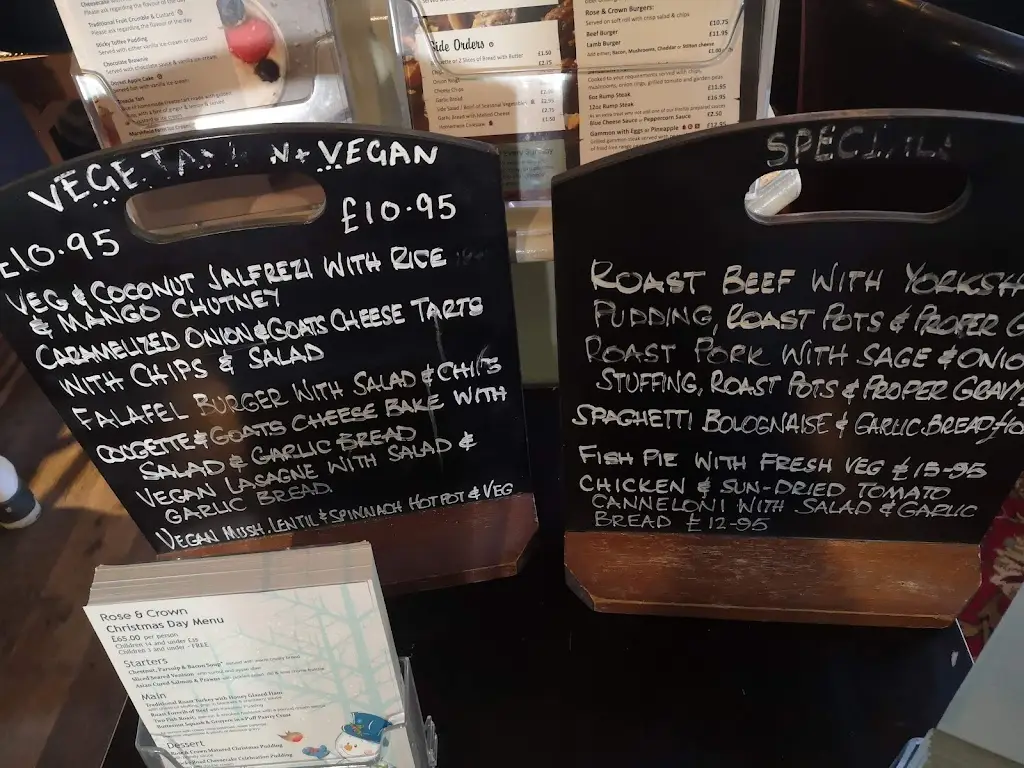 Please ask regarding the flavour of the day
Traditional Fruit Crumble & Custard
Please ask regarding the flavour of the day
Sticky Toffee Pudding
Served with either vanilla ice cream or custard
Chocolate Brownie
Served with chocolate sauce & vanilla ice cream
Dorset Apple Cake
Side Orders
£1.50
Onion Rings
Cheesy Chips
Garlic Bread
Garlic Bread with Melted Cheese
Homemade Coleslaw
£2.75
£2.50
£1.50
Rose & Crown Burgers:
Served on soft roll with crisp salad & chips
£10.75
Beef Burger
£11.95
Lamb Burger
Add either; Bacon, Mushrooms, Cheddar or Stilton cheese
£1.00
Cooked to your requirements served with chips,
mushrooms, onion rings, grilled tomato and garden peas
£11.95
6oz Rump Steak
£16.95
12oz Rump Steak
Blue Cheese Sauce or Peppercorn Sauce
£2.50
Gammon with Eggs or Pineapple
£12.95
VEGETARIAN + VEGAN
£10.95
£10.95
VEG & COCONUT JALFREZI WITH RICE
& MANGO CHUTNEY
CARAMELIZED ONION & GOATS CHEESE TARTS
WITH CHIPS & SALAD
FALAFEL BURGER WITH SALAD & CHIPS
COCGETTE & GOATS CHEESE BAKE WITH
SALAD & GARLIC BREAD
VEGAN LASAGNE WITH SALAD &
GARLIC BREAD.
VEGAN MUSH, LENTIL & SPINNACH HOT POT & VEG
SPECIALS
ROAST BEEF WITH YORKSH
PUDDING, ROAST POTS & PROPER G
ROAST PORK WITH SAGE & ONIO
STUFFING, ROAST POTS & PROPER GRAVY
SPAGHETTI BOLOGNAISE & GARLIC BREAD
FISH PIE WITH FRESH VEG £13-95
CHICKEN & SUN-DRIED TOMATO
CANNELONI WITH SALAD & GARLIC
BREAD £12-95
Rose & Crown
Christmas Day Menu
£65.00 per person
Children 14 and under £35
Children 3 and under - FREE
Starters
Chestnut, Parsnip & Bacon Soup
Sliced Smoked Venison
Asian Cured Salmon & Prawns
Main
Traditional Roast Turkey with Honey Glazed Ham
Roast Forerib of Beef
Two Fish Roast
Butternut Squash & Gruyere in a Puff Pastry Crust
Dessert
Rose & Crown Matured Christmas Pudding
Cheesecake Celebration Pudding